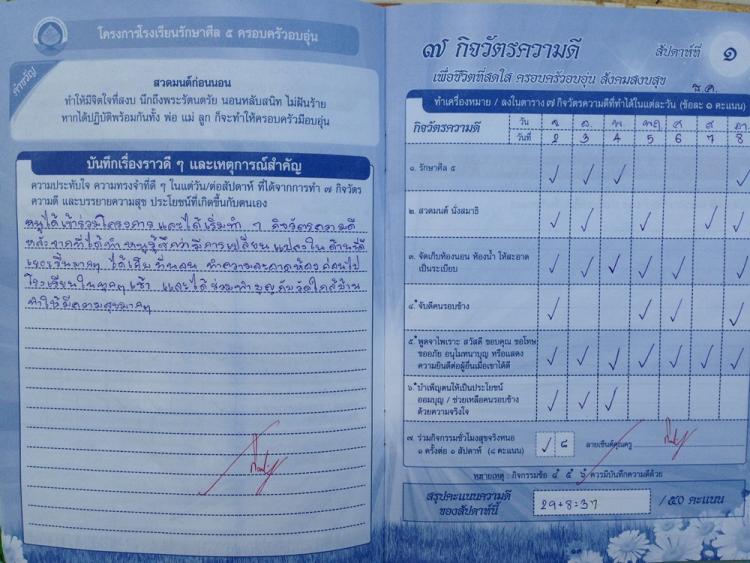 โครงการโรงเรียนรักษาศีล ๕ ครอบครัวอบอุ่น
คำขวัญ
สวดมนต์ก่อนนอน
ทำให้มีจิตใจที่สงบ นึกถึงพระรัตนตรัย นอนหลับสนิท ไม่ฝันร้าย
หากได้ปฏิบัติพร้อมกันทั้ง พ่อ แม่ ลูก ก็จะทำให้ครอบครัวมีอบอุ่น
บันทึกเรื่องราวดี ๆ และเหตุการณ์สำคัญ
ความประทับใจ ความทรงจำที่ดี ๆ ในแต่วัน/ต่อสัปดาห์ ที่ได้จากการทำ ๗ กิจวัตร
ความดี และบรรยายความสุข ประโยชน์ที่เกิดขึ้นกับตนเอง
หนูได้เข้าร่วมโครงการ และได้เริ่มทำ ๗ กิจวัตรความดี
หลังจากที่ได้ทำหนูรู้สึกว่ามีการเปลี่ยนแปลงในด้านที่ดี
เยอะขึ้นมากๆ ได้เก็บที่นอน ทำความสะอาดห้องก่อนไป
โรงเรียนในทุกๆเช้า และได้ร่วมทำบุญกับวัดใกล้บ้าน
ทำให้มีความสุขมากๆ
๗ กิจวัตรความดี
สัปดาห์ที่ ๑
เพื่อชีวิตที่สดใส ครอบครัวอบอุ่น สังคมสงบสุข
ธ.ค.
ทำเครื่องหมาย / ลงในตาราง ๗ กิจวัตรความดีที่ทำได้ในแต่ละวัน (ข้อละ ๑ คะแนน)
กิจวัตรความดี วัน จ. อ. พ. พฤ ศ ส อา.
วันที่ 2 3 4 5 6 7 8
๑. รักษาศีล ๕
๒. สวดมนต์ นั่งสมาธิ
๓. จัดเก็บห้องนอน ห้องน้ำ ให้สะอาด
เป็นระเบียบ
๔. จับดีคนรอบข้าง
๕. พูดจาไพเราะ สวัสดี ขอบคุณ ขอโทษ
ขออภัย อนุโมทนาบุญ หรือแสดง
ความยินดีต่อผู้อื่นเมื่อเขาได้ดี
๖. บำเพ็ญตนให้เป็นประโยชน์
ออมบุญ / ช่วยเหลือคนรอบข้าง
ด้วยความจริงใจ
๗. ร่วมกิจกรรมชั่วโมงสุขจริงหนอ
๑ ครั้งต่อ ๑ สัปดาห์ (๘ คะแนน)
๘
ลายเซ็นต์คุณครู
หมายเหตุ : กิจกรรมข้อ ๔ ๕ ๖ ควรมีบันทึกความดีด้วย
สรุปคะแนนความดี
ของสัปดาห์นี้
29+8=37
/ ๕๐ คะแนน